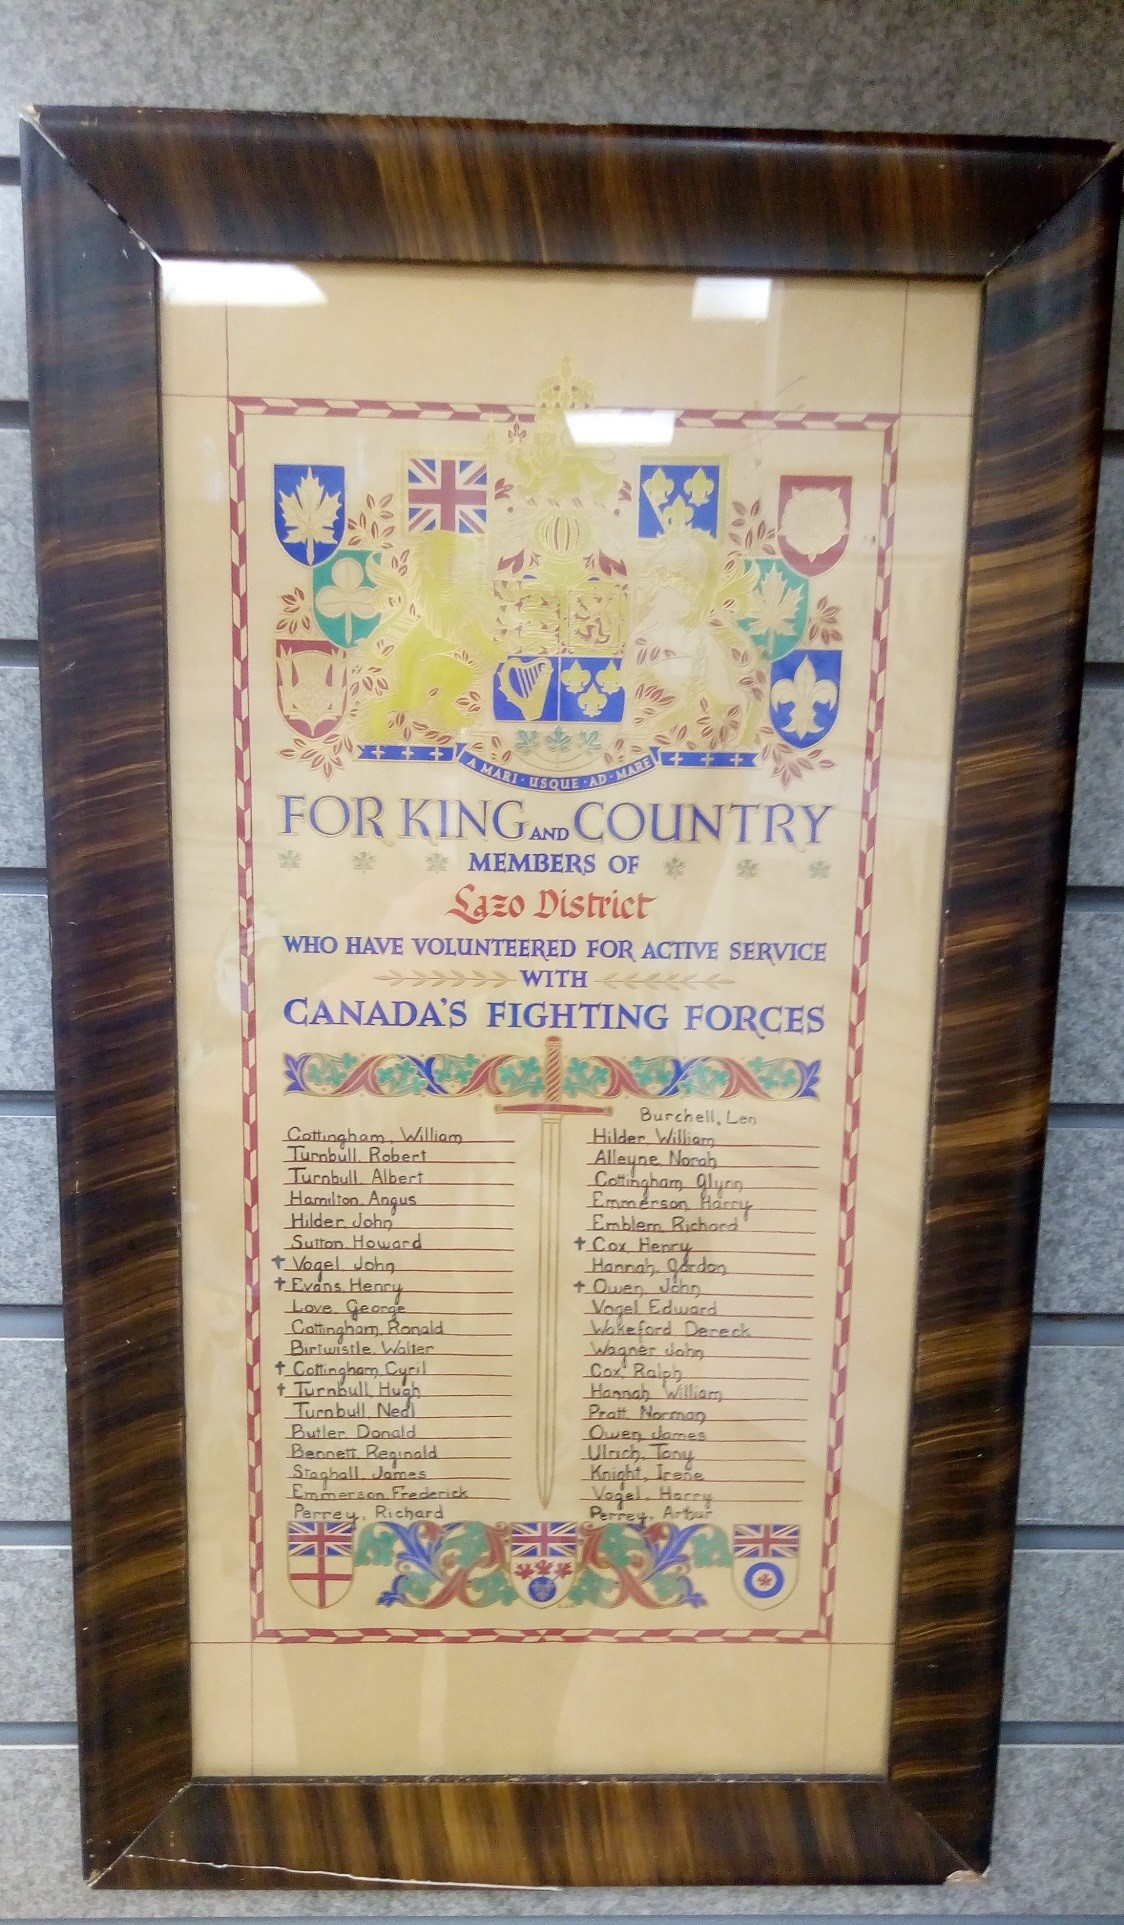 A MARI · USQUE · AD · MARE
FOR KING AND COUNTRY
MEMBERS OF
Lazo District
WHO HAVE VOLUNTEERED FOR ACTIVE SERVICE
WITH
CANADA'S FIGHTING FORCES
Cottingham, William
Turnbull, Robert
Turnbull, Albert
Hamilton, Angus
Hilder, John
Sutton, Howard
† Vogel, John
† Evans, Henry
Love, George
Cottingham, Ronald
Birtwistle, Walter
† Cottingham, Cyril
† Turnbull, Hugh
Turnbull, Neal
Butler, Donald
Bennett, Reginald
Staghall, James
Emmerson, Frederick
Perrey, Richard
Burchell, Len
Hilder, William
Alleyne, Norah
Cottingham, Glynn
Emmerson, Harry
Emblem, Richard
† Cox, Henry
Hannah, Gordon
† Owen, John
Vogel, Edward
Wakeford, Dereck
Wagner, John
Cox, Ralph
Hannah, William
Pratt, Norman
Owen, James
Ulrich, Tony
Knight, Irene
Vogel, Harry
Perrey, Arthur